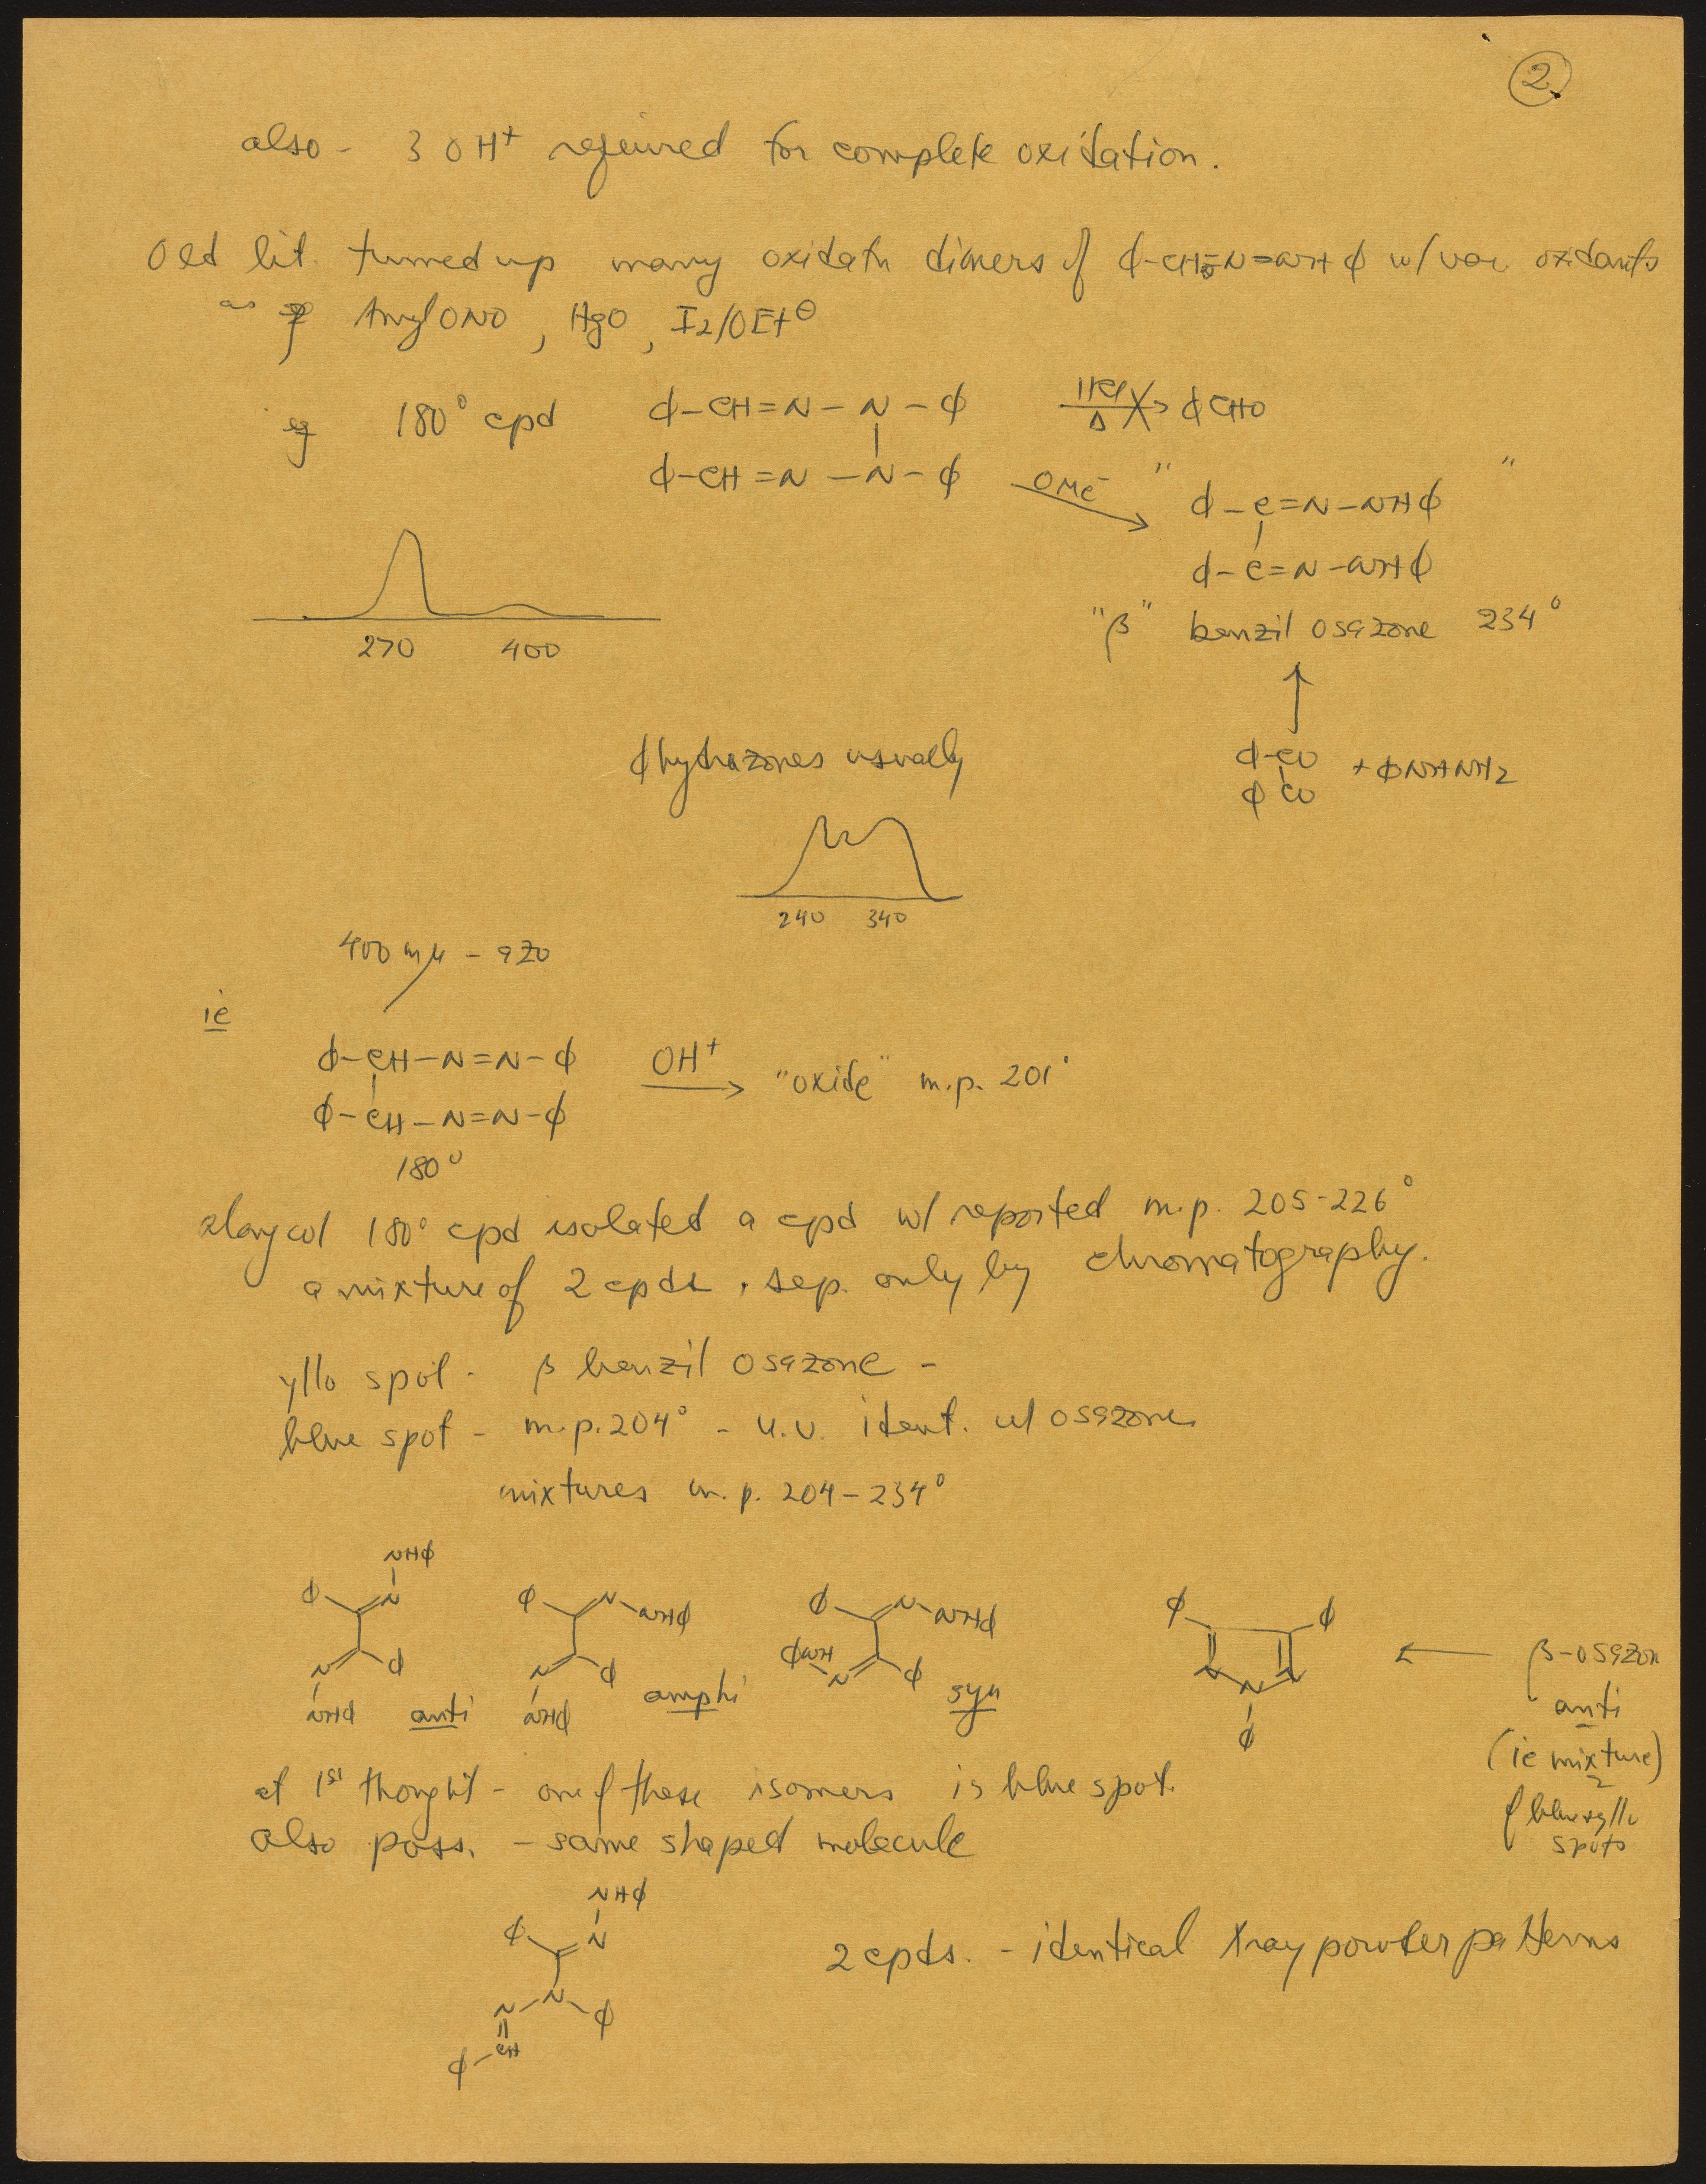 2
also - 3 OH⁺ required for complete oxidation.
Old lit. turned up many oxidatn dimers of ϕ-CH=N-NHϕ w/ var oxidants
as Amyl ONO, HgO, I₂/OEt⊖
eg 180° cpd ϕ-CH=N-N-ϕ HCl Δ ϕCHO
ϕ-CH=N-N-ϕ OMe⁻ " ϕ-C=N-NHϕ "
ϕ-C=N-NHϕ
270 400
"β" benzil osazone 234°
ϕhydrazones usually
ϕ-CO + ϕNHNH₂
ϕ CO
240 340
400 mμ - azo
ie
ϕ-CH-N=N-ϕ OH⁺ "oxide" m.p. 201°
ϕ-CH-N=N-ϕ
180°
along w/ 180° cpd isolated a cpd w/ reported m.p. 205-226°
a mixture of 2 cpds, sep. only by chromatography.
yllo spot - β benzil osazone -
blue spot - m.p. 204° - u.v. ident. w/ osazone
mixtures m.p. 204-234°
NHϕ
ϕ N ϕ N-NHϕ ϕ N-NHϕ ϕ ϕ
N ϕ N ϕ ϕNH N ϕ N N N ← β-osazon
NHϕ anti NHϕ amphi syn ϕ anti
(ie mixture)
of blue & yllo
spots
at 1st thought - one of these isomers is blue spot.
also poss. - same shaped molecule
NHϕ
ϕ N
N-N ϕ
ϕ-CH
2 cpds. - identical Xray powder patterns